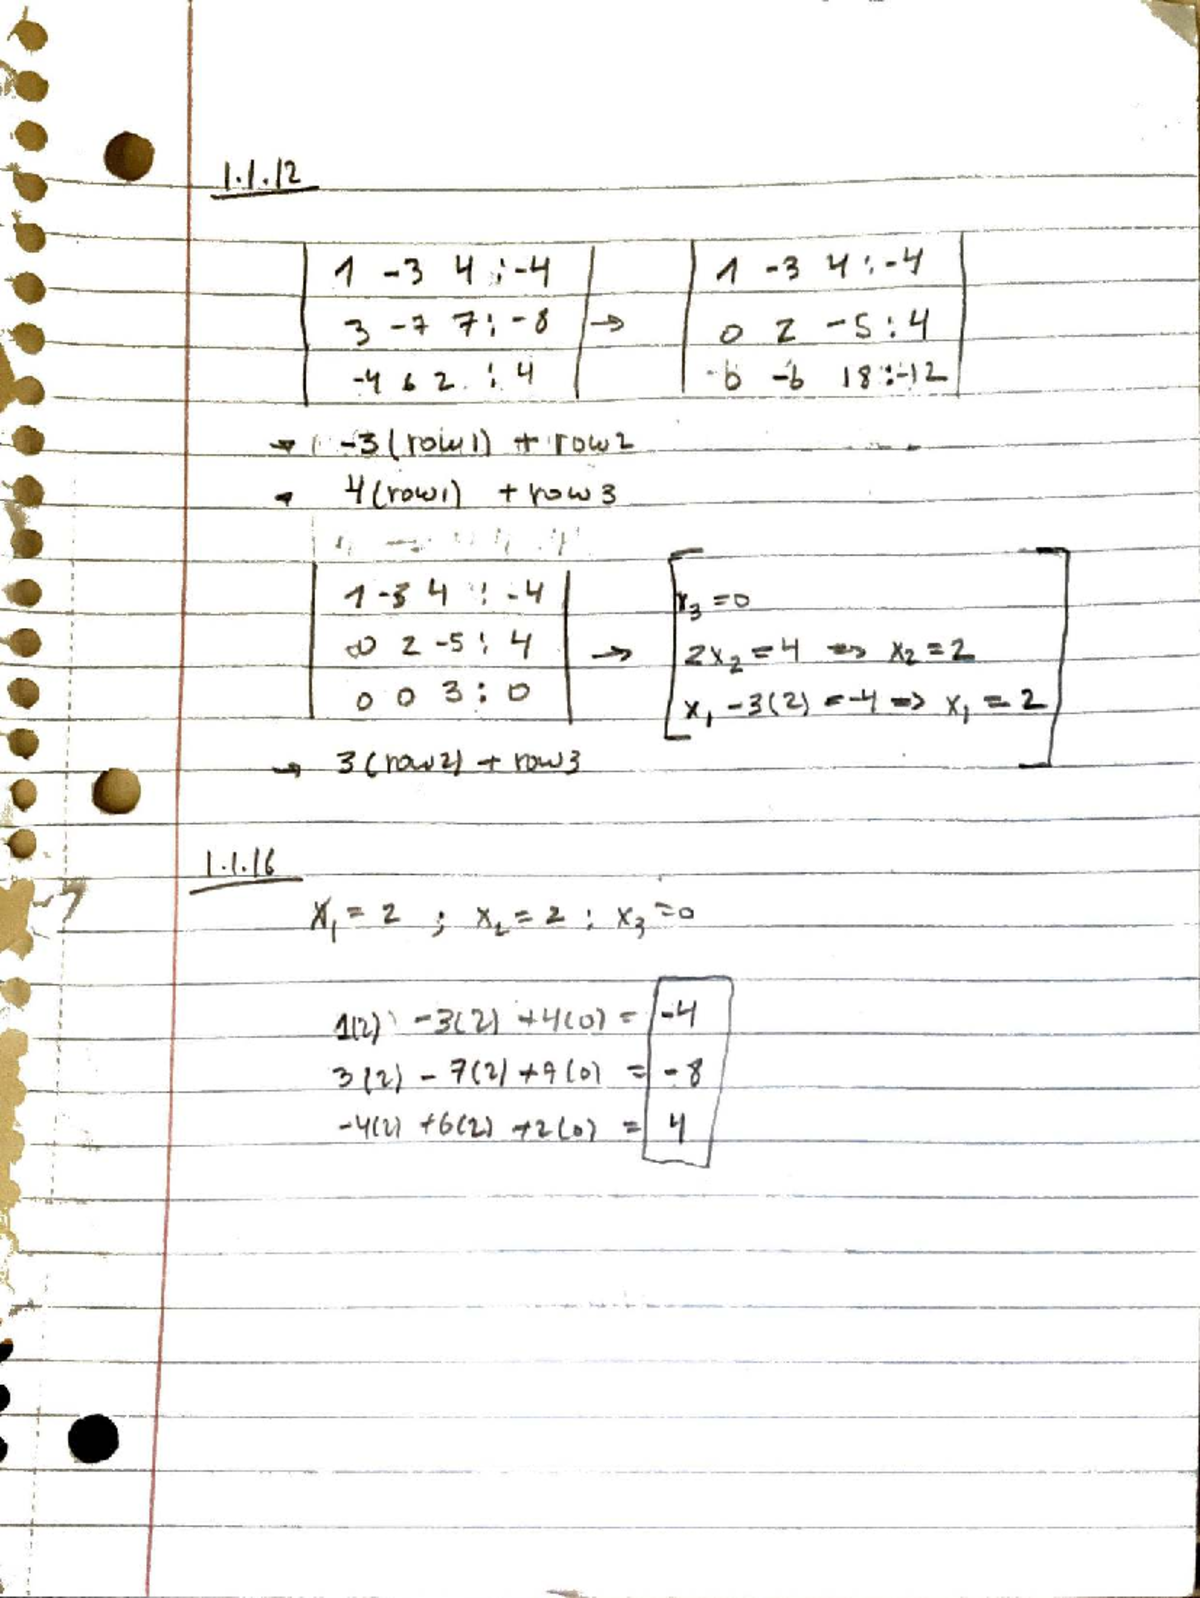 1.1.12
1 -3 4 : -4 1 -3 4 : -4
3 -7 7 : -8 → 0 2 -5 : 4
-4 6 2 . : 4 -6 -6 18 : -12
→ -3(row1) + row2
4(row1) + row3
1 -3 4 : -4 x₃ = 0
0 2 -5 : 4 → 2x₂ = 4 => x₂ = 2
0 0 3 : 0 x₁ - 3(2) = -4 => x₁ = 2
→ 3(row2) + row3
1.1.16
x₁ = 2 ; x₂ = 2 ; x₃ = 0
1(2) -3(2) +4(0) = -4
3(2) - 7(2) +9(0) = -8
-4(2) +6(2) +2(0) = 4